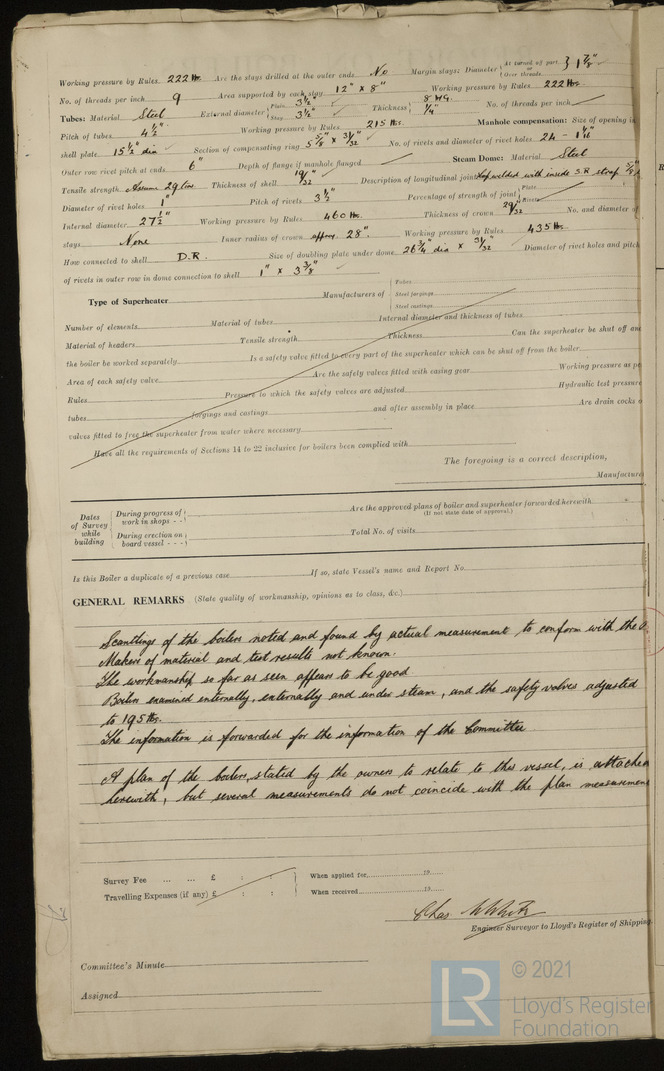 Working pressure by Rules 222 lbs. Are the stays drilled at the outer ends No Margin stays: Diameter { At turned off part, Over threads } 1 7/8"
No. of threads per inch 9 Area supported by each stay 12" x 8" Working pressure by Rules 222 lbs.
Tubes: Material Steel External diameter { Plain 3 1/2" Stay 3 1/2" Thickness { 8 WG. 1/4" No. of threads per inch
Pitch of tubes 4 1/2" Working pressure by Rules 215 lbs. Manhole compensation: Size of opening in
shell plate 15 1/2" dia Section of compensating ring 5 5/8" x 31/32" No. of rivets and diameter of rivet holes 24 - 1 1/16"
Outer row rivet pitch at ends 6" Depth of flange if manhole flanged Steam Dome: Material Steel
Tensile strength Assume 29 tons Thickness of shell 19/32" Description of longitudinal joint Lap welded with inside S.R. strap 5/8"
Diameter of rivet holes 1" Pitch of rivets 3 1/2" Percentage of strength of joint { Plate Rivets
Internal diameter 27 1/2" Working pressure by Rules 460 lbs. Thickness of crown 29/32" No. and diameter of
stays None Inner radius of crown approx. 28". Working pressure by Rules 435 lbs.
How connected to shell D.R. Size of doubling plate under dome 26 3/4" dia x 31/32" Diameter of rivet holes and pitch
of rivets in outer row in dome connection to shell 1" x 3 3/8"
Type of Superheater Manufacturers of { Tubes Steel forgings Steel castings
Number of elements Material of tubes Internal diameter and thickness of tubes
Material of headers Tensile strength Thickness Can the superheater be shut off and
the boiler be worked separately Is a safety valve fitted to every part of the superheater which can be shut off from the boiler
Area of each safety valve Are the safety valves fitted with easing gear Working pressure as per
Rules Pressure to which the safety valves are adjusted Hydraulic test pressure
tubes forgings and castings and after assembly in place Are drain cocks o
valves fitted to free the superheater from water where necessary
Have all the requirements of Sections 14 to 22 inclusive for boilers been complied with
The foregoing is a correct description,
Manufacturer
Dates of Survey while building { During progress of work in shops - - } Are the approved plans of boiler and superheater forwarded herewith
(If not state date of approval.)
{ During erection on board vessel - - - } Total No. of visits
Is this Boiler a duplicate of a previous case If so, state Vessel's name and Report No.
GENERAL REMARKS (State quality of workmanship, opinions as to class, &c.)
Scantlings of the boilers noted and found by actual measurement to conform with the
Makers of material and test results not known.
The workmanship so far as seen appears to be good
Boilers examined internally, externally and under steam, and the safety valves adjusted
to 195 lbs.
The information is forwarded for the information of the Committee
A plan of the boilers, stated by the owners to relate to this vessel, is attached
herewith, but several measurements do not coincide with the plan measurement
Survey Fee ... ... £ : : When applied for, 19
Travelling Expenses (if any) £ : : When received, 19
Chas W White
Engineer Surveyor to Lloyd's Register of Shipping.
Committee's Minute
Assigned
LR © 2021
Lloyd's Register
Foundation